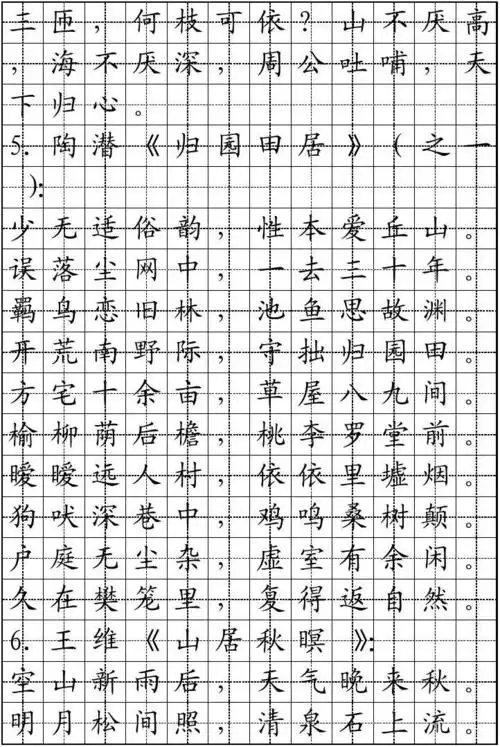 三匝，何枝可依？山不厌高
，海不厌深，周公吐哺，天
下归心。
5.陶潜《归园田居》(之一
):
少无适俗韵，性本爱丘山。
误落尘网中，一去三十年。
羁鸟恋旧林，池鱼思故渊。
开荒南野际，守拙归园田。
方宅十余亩，草屋八九间。
榆柳荫后檐，桃李罗堂前。
暧暧远人村，依依里墟烟。
狗吠深巷中，鸡鸣桑树颠。
户庭无尘杂，虚室有余闲。
久在樊笼里，复得返自然。
6.王维《山居秋暝》:
空山新雨后，天气晚来秋。
明月松间照，清泉石上流。